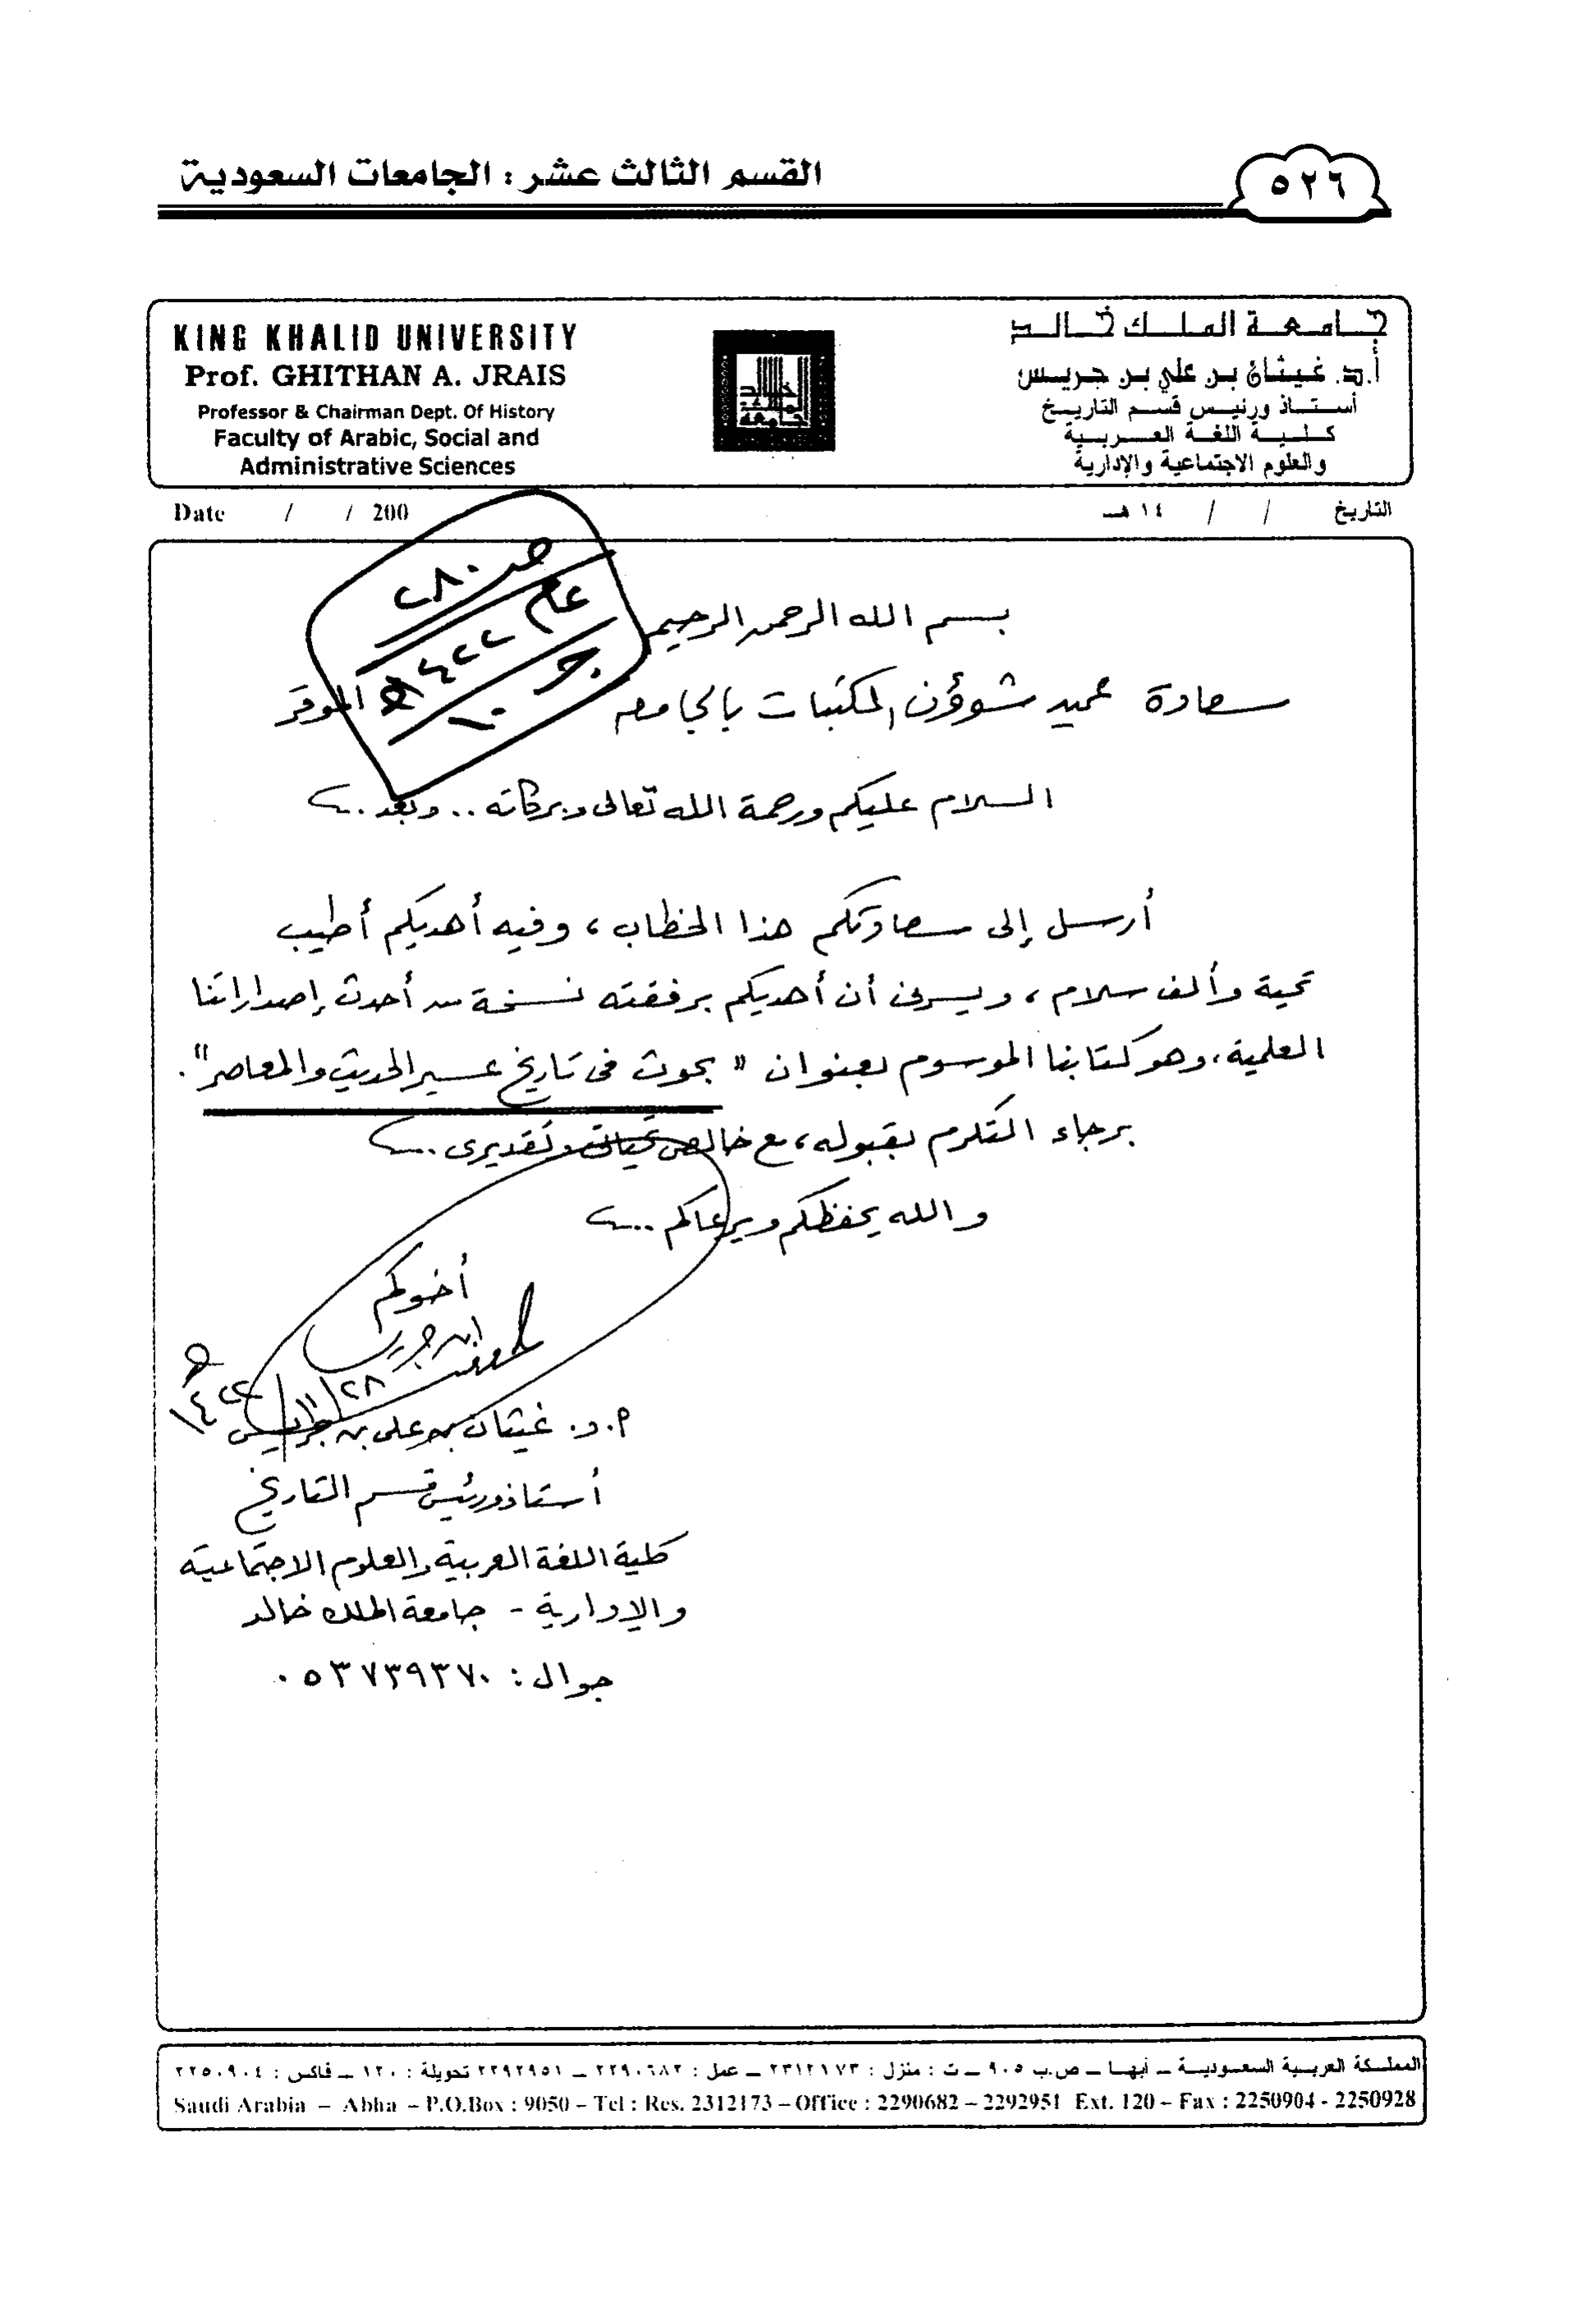 القسم الثالث عشر : الجامعات السعودية
٥٢٦
KING KHALID UNIVERSITY
Prof. GHITHAN A. JRAIS
Professor & Chairman Dept. Of History
Faculty of Arabic, Social and
Administrative Sciences
جامعة الملك خالد
أ.د. غيثان بن علي بن جريس
أستاذ ورئيس قسم التاريخ
كلية اللغة العربية
والعلوم الاجتماعية والإدارية
Date / / 200
التاريخ / / ١٤ هـ
ص ٢٨٠
عام ١٤٢٢هـ
ج ١٠
بسم الله الرحمن الرحيم
سعادة عميد شؤون المكتبات بالجامعة الموقر
السلام عليكم ورحمة الله تعالى وبركاته .. وبعد ..
أرسل إلى سعادتكم هذا الخطاب ، وفيه أهديكم أطيب
تحية وألف سلام ، ويسرني أن أهديكم برفقته نسخة من أحدث إصداراتنا
العلمية ، وهو كتابنا الموسوم بعنوان " بحوث في تاريخ عسير الحديث والمعاصر " .
برجاء التكرم بقبوله ، مع خالص تحياتي وتقديري ...
والله يحفظكم ويرعاكم ...
أخوكم
ابن جريس
٢٨ / ١١ / ١٤٢٢هـ
أ . د . غيثان بن علي بن جريس
أستاذ ورئيس قسم التاريخ
كلية اللغة العربية والعلوم الاجتماعية
والإدارية - جامعة الملك خالد
جوال : ٠٥٣٧٣٩٣٧٠
المملكة العربية السعودية – أبها – ص.ب ٩٠٥ – ت : منزل : ٢٣١٢١٧٣ – عمل : ٢٢٩٠٦٨٢ – ٢٢٩٢٩٥١ تحويلة : ١٢٠ – فاكس : ٢٢٥٠٩٠٤
Saudi Arabia – Abha – P.O.Box : 9050 – Tel : Res. 2312173 – Office : 2290682 – 2292951 Ext. 120 – Fax : 2250904 - 2250928